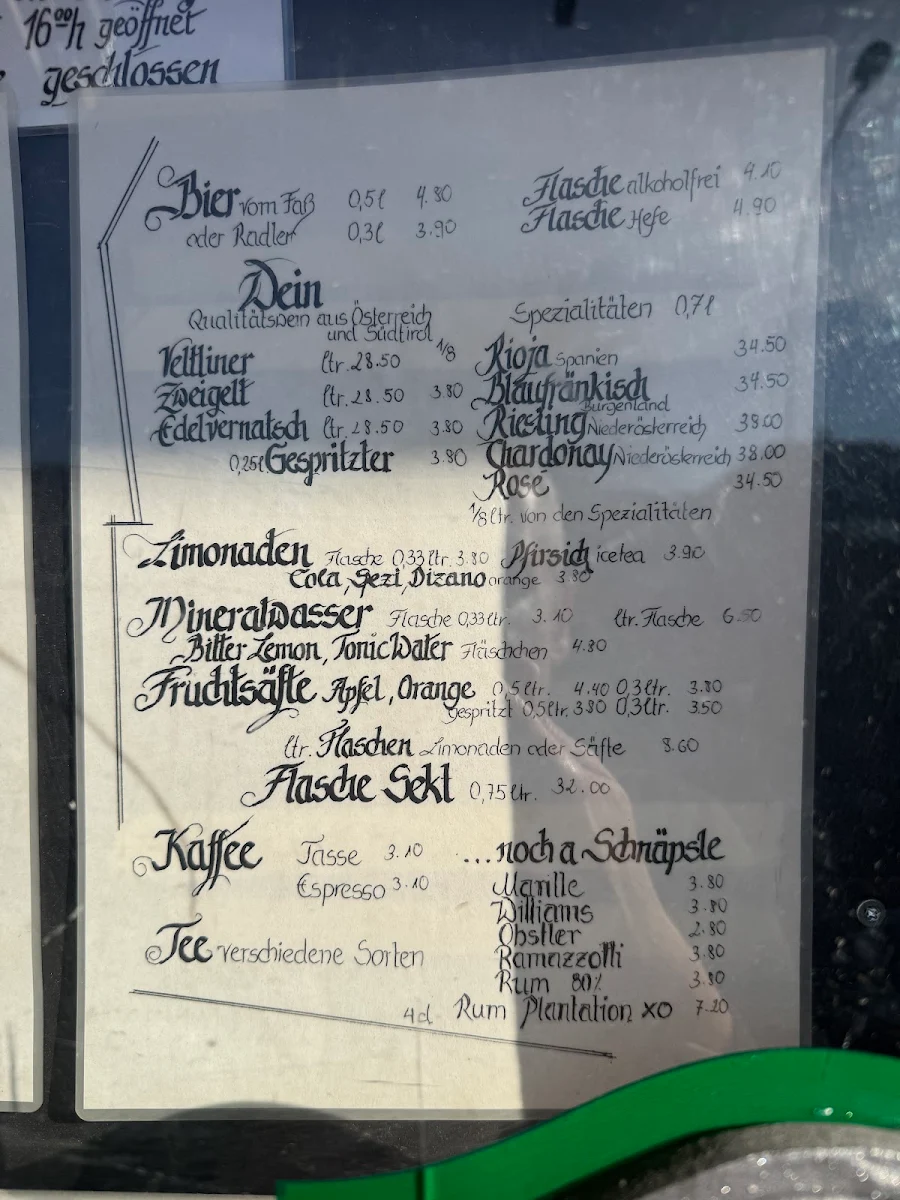 16ººh geöffnet
geschlossen
Bier vom Faß 0,5l 4.80
oder Radler 0,3l 3.90
Flasche alkoholfrei 4.10
Flasche Hefe 4.90
Wein
Qualitätswein aus Österreich
und Südtirol
1/8
Veltliner ltr. 28.50
Zweigelt ltr. 28.50 3.80
Edelvernatsch ltr. 28.50 3.80
0,25l Gespritzter 3.80
Spezialitäten 0,7l
Rioja Spanien 34.50
Blaufränkisch 34.50
Burgenland
Riesling Niederösterreich 38.00
Chardonay Niederösterreich 38.00
Rosé 34.50
1/8 ltr. von den Spezialitäten
Limonaden Flasche 0,33 ltr. 3.80 Pfirsich icetea 3.90
Cola, Spezi, Dizano orange 3.80
Mineralwasser Flasche 0,33 ltr. 3.10 ltr. Flasche 6.50
Bitter Lemon, Tonic Water Fläschchen 4.80
Fruchtsäfte Apfel, Orange 0,5 ltr. 4.40 0,3 ltr. 3.80
gespritzt 0,5 ltr. 3.80 0,3 ltr. 3.50
ltr. Flaschen Limonaden oder Säfte 8.60
Flasche Sekt 0,75 ltr. 32.00
Kaffee Tasse 3.10
Espresso 3.10
Tee verschiedene Sorten
...noch a Schnäpsle
Marille 3.80
Williams 3.80
Obstler 2.80
Ramazzotti 3.80
Rum 80% 3.80
4cl Rum Plantation XO 7.20